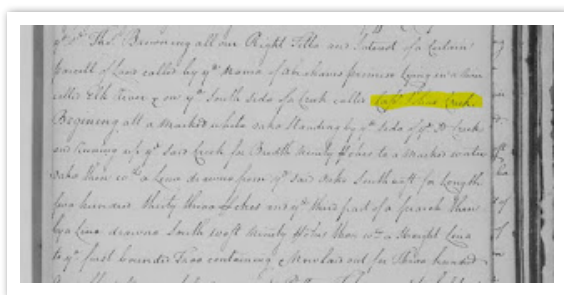 yᵉ sᵈ Thoˢ Browning all our Right Title and Interest of a Certain
parcell of Land called by yᵉ Name of Abrahams promise Lying in a
called Elk River & on yᵉ South side of a Creek called Capᵗ Johns Creek
Begining att a Marked white oake standing by yᵉ side of yᵉ sᵈ Creek
and runing up yᵉ said Creek for Bredth Ninety poles to a Marked water
oake then wᵗʰ a Line drawne from yᵉ said oake South east for Length
two hundred thirty three poles and yᵉ third part of a pearch then
by a Line drawne South west Ninety poles then wᵗʰ a Straight Line
to yᵉ first bounded Tree containing & now laid out for Three hundred